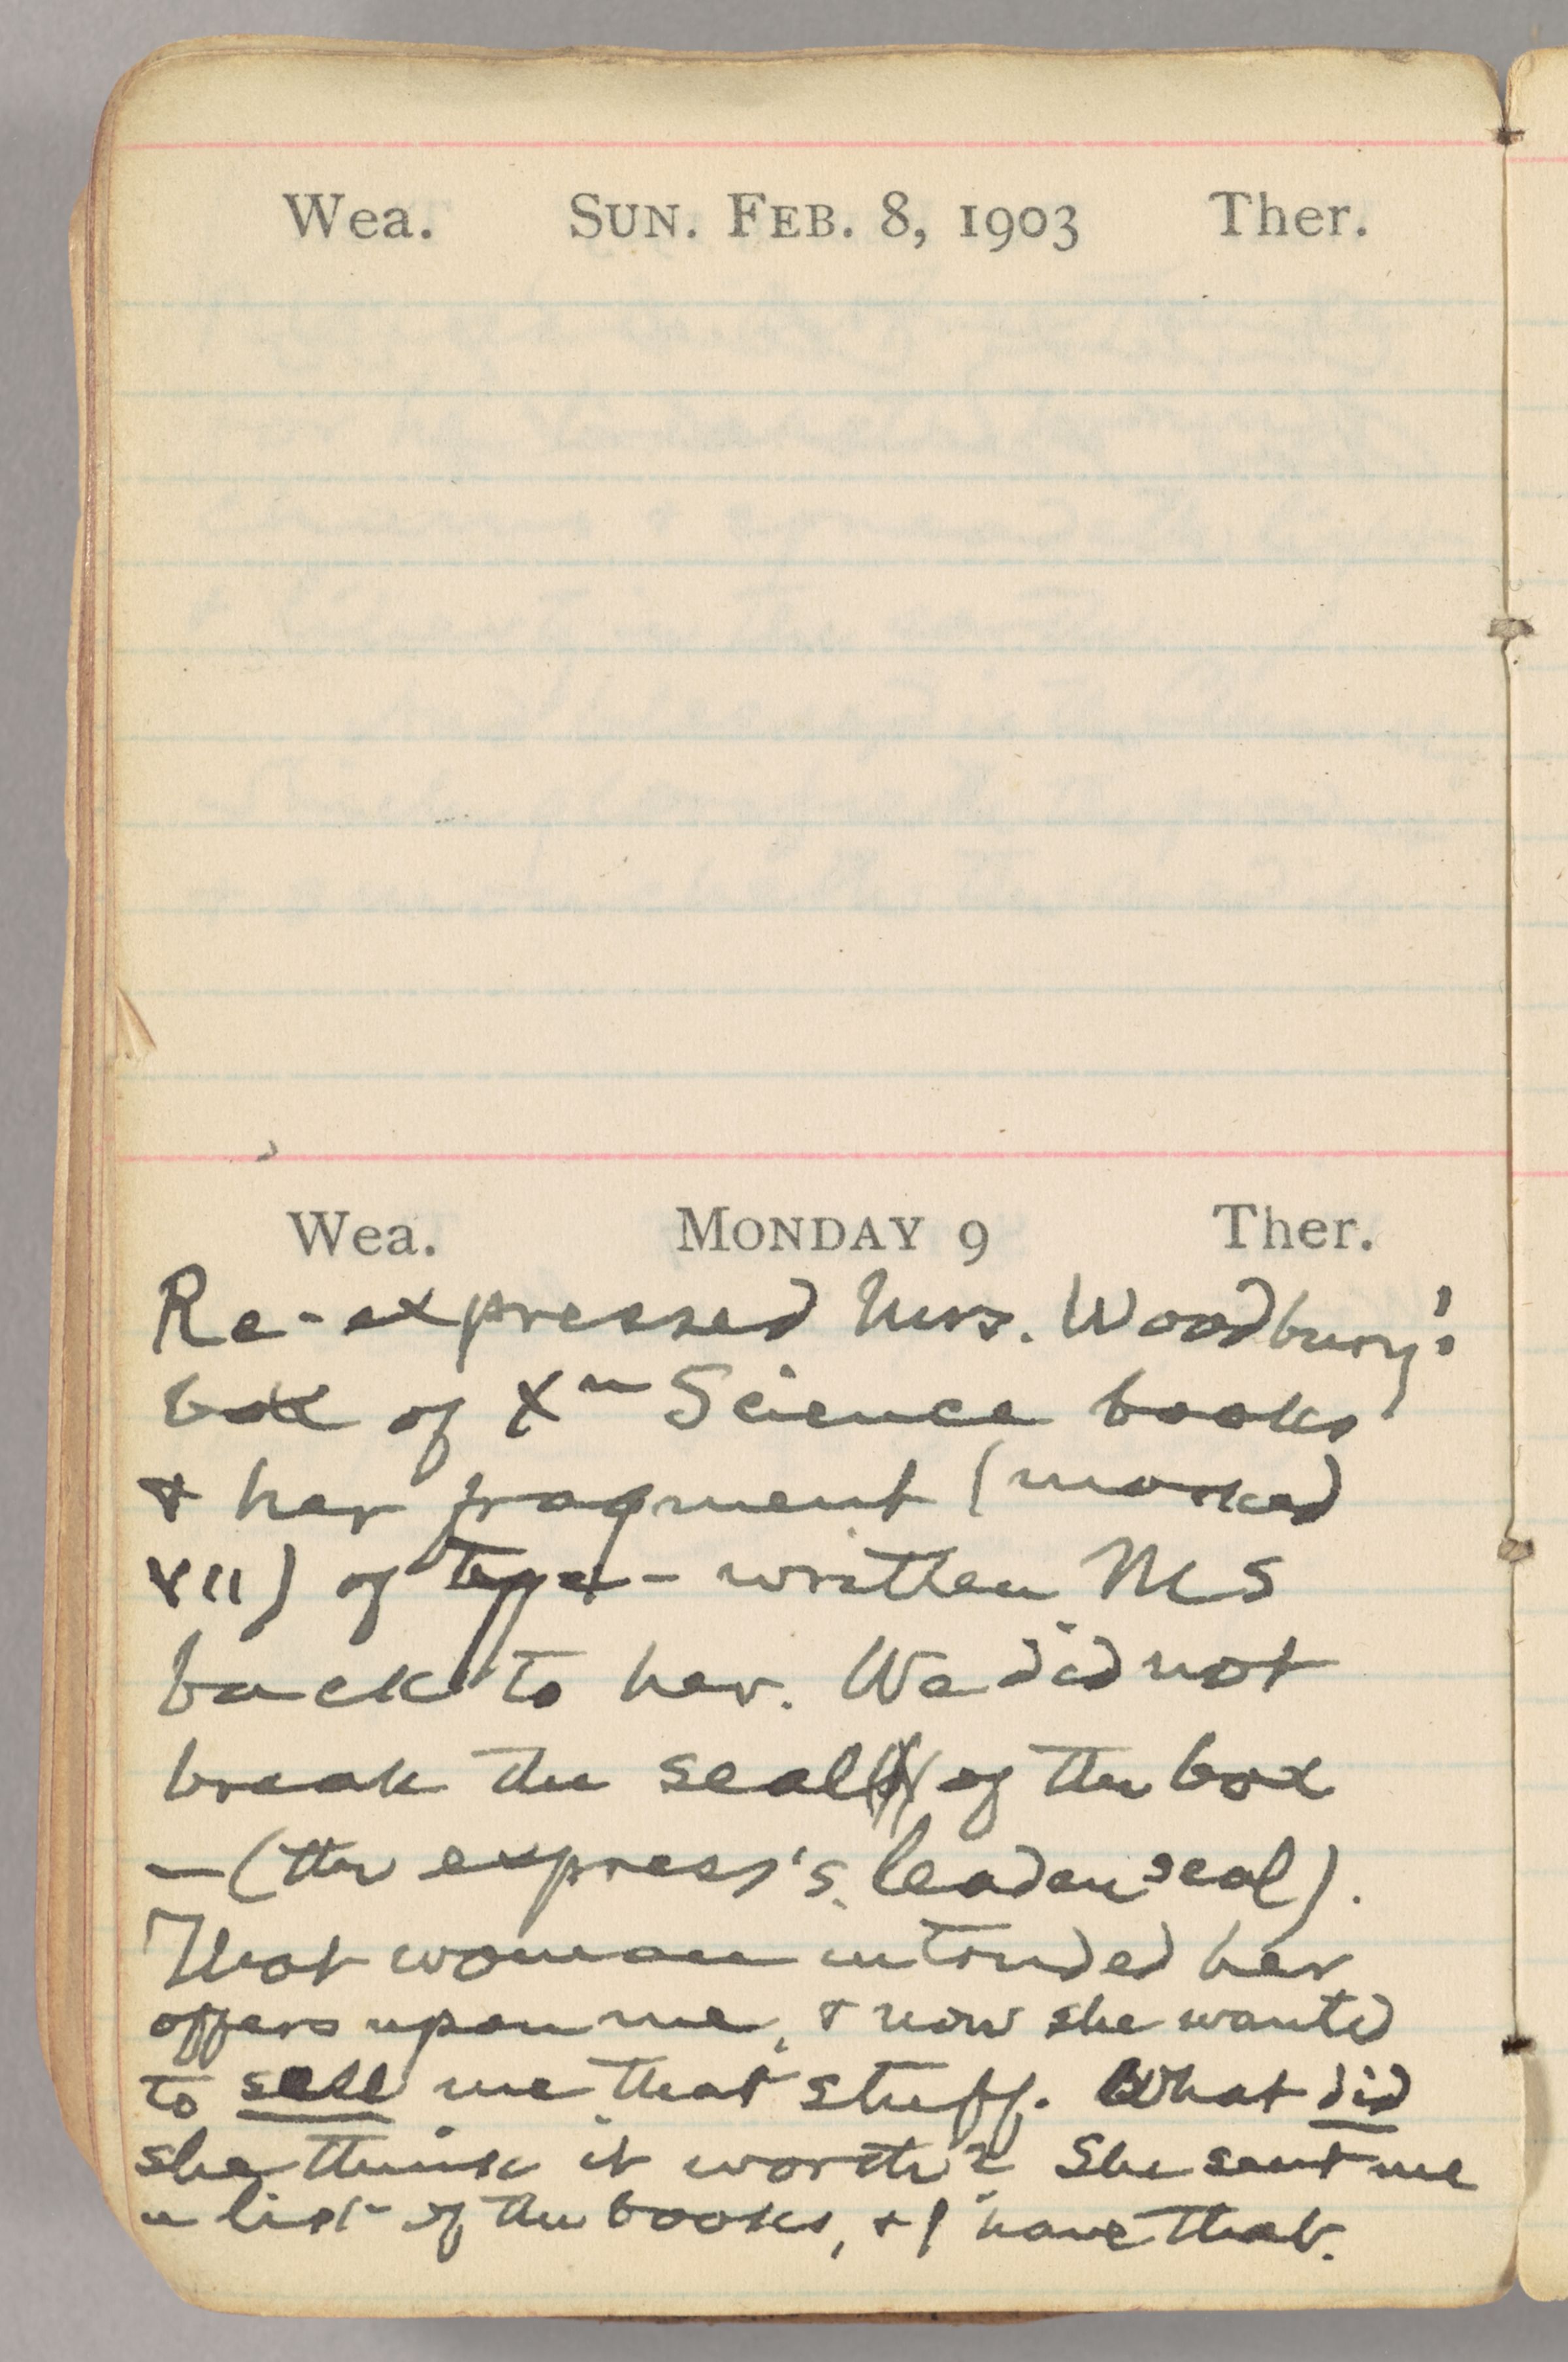 Wea. SUN. FEB. 8, 1903 Ther.
Wea. MONDAY 9 Ther.
Re-expressed Mrs. Woodbury's
box of Xn Science books
& her fragment (marked
XII) of type-written MS
back to her. We did not
break the seal of the box
—(the express's leaden seal).
That woman intruded her
offers upon me, & now she wanted
to sell me that stuff. What did
she think it worth? She sent me
a list of the books, & I have that.